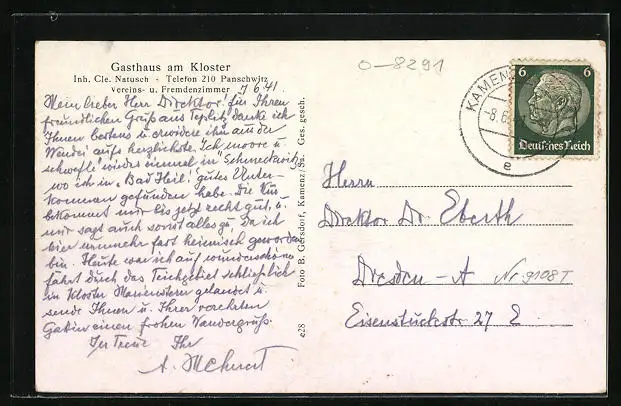 Gasthaus am Kloster
Inh. Cle. Natusch - Telefon 210 Panschwitz
Vereins- u. Fremdenzimmer
7.6.41
Mein lieber Herr Direktor! für Ihren
freundlichen Gruß aus Teplitz danke ich
Ihnen bestens u. erwidere ihn aus der
Wendei aufs herzlichste. Ich moore u.
schwefle wieder einmal in "Schmeckwitz,
wo ich in "Bad Heil" gutes Unter-
kommen gefunden habe. Die Kur
bekommt mir bis jetzt recht gut, u.
mir sagt auch sonst alles zu, da ich
hier nunmehr fast heimisch geworden
bin. Heute war ich auf wunderschöner
fahrt durch das Teichgebiet schließlich
in Kloster Marienstern gelandet u.
sende Ihnen u. Ihrer verehrten
Gattin einen frohen Wandergruß.
In Treue Ihr
A.
Foto B. Gersdorf, Kamenz/Sa. Ges. gesch.
e28
0-8291
KAMENZ
-8.6.
e
6 6
Deutsches Reich
Herrn
Direktor Dr. Eberth
Dresden-A Nr 9108T
Eisenstuckstr. 27 E